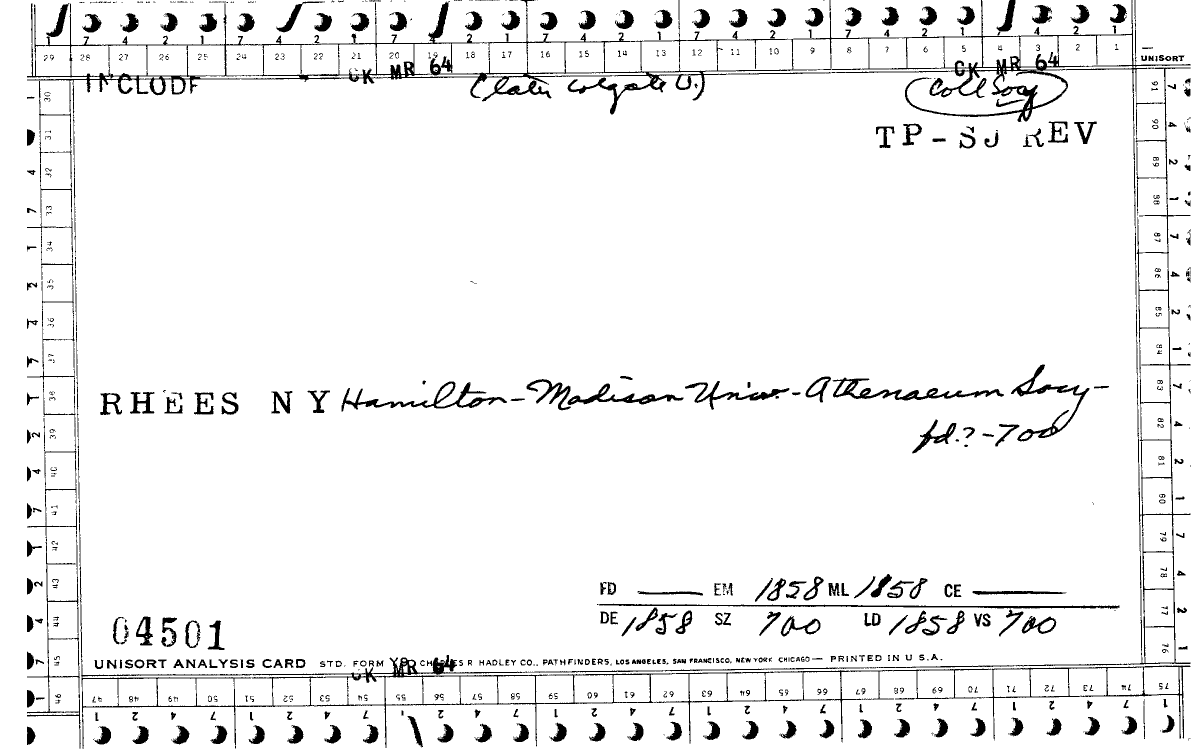 7 4 2 1 7 4 2 1 7 4 2 1 7 4 2 1 7 4 2 1 7 4 2 1 7 4 2 1
29 28 27 26 25 24 23 22 21 20 19 18 17 16 15 14 13 12 11 10 9 8 7 6 5 4 3 2 1
UNISORT
CK MR 64
CK MR 64
INCLUDE
(later Colgate U.)
Coll Socy
TP-SJ REV
RHEES N Y Hamilton-Madison Univ.-Athenaeum Socy-
fd.?-700
FD EM 1858 ML 1858 CE
DE 1858 SZ 700 LD 1858 VS 700
04501
UNISORT ANALYSIS CARD STD. FORM Y9 CHARLES R HADLEY CO., PATHFINDERS, LOS ANGELES, SAN FRANCISCO, NEW YORK CHICAGO— PRINTED IN U S.A.
CK MR 64
30 31 32 33 34 35 36 37 38 39 40 41 42 43 44 45 46
47 48 49 50 51 52 53 54 55 56 57 58 59 60 61 62 63 64 65 66 67 68 69 70 71 72 73 74 75
91 90 89 88 87 86 85 84 83 82 81 80 79 78 77 76